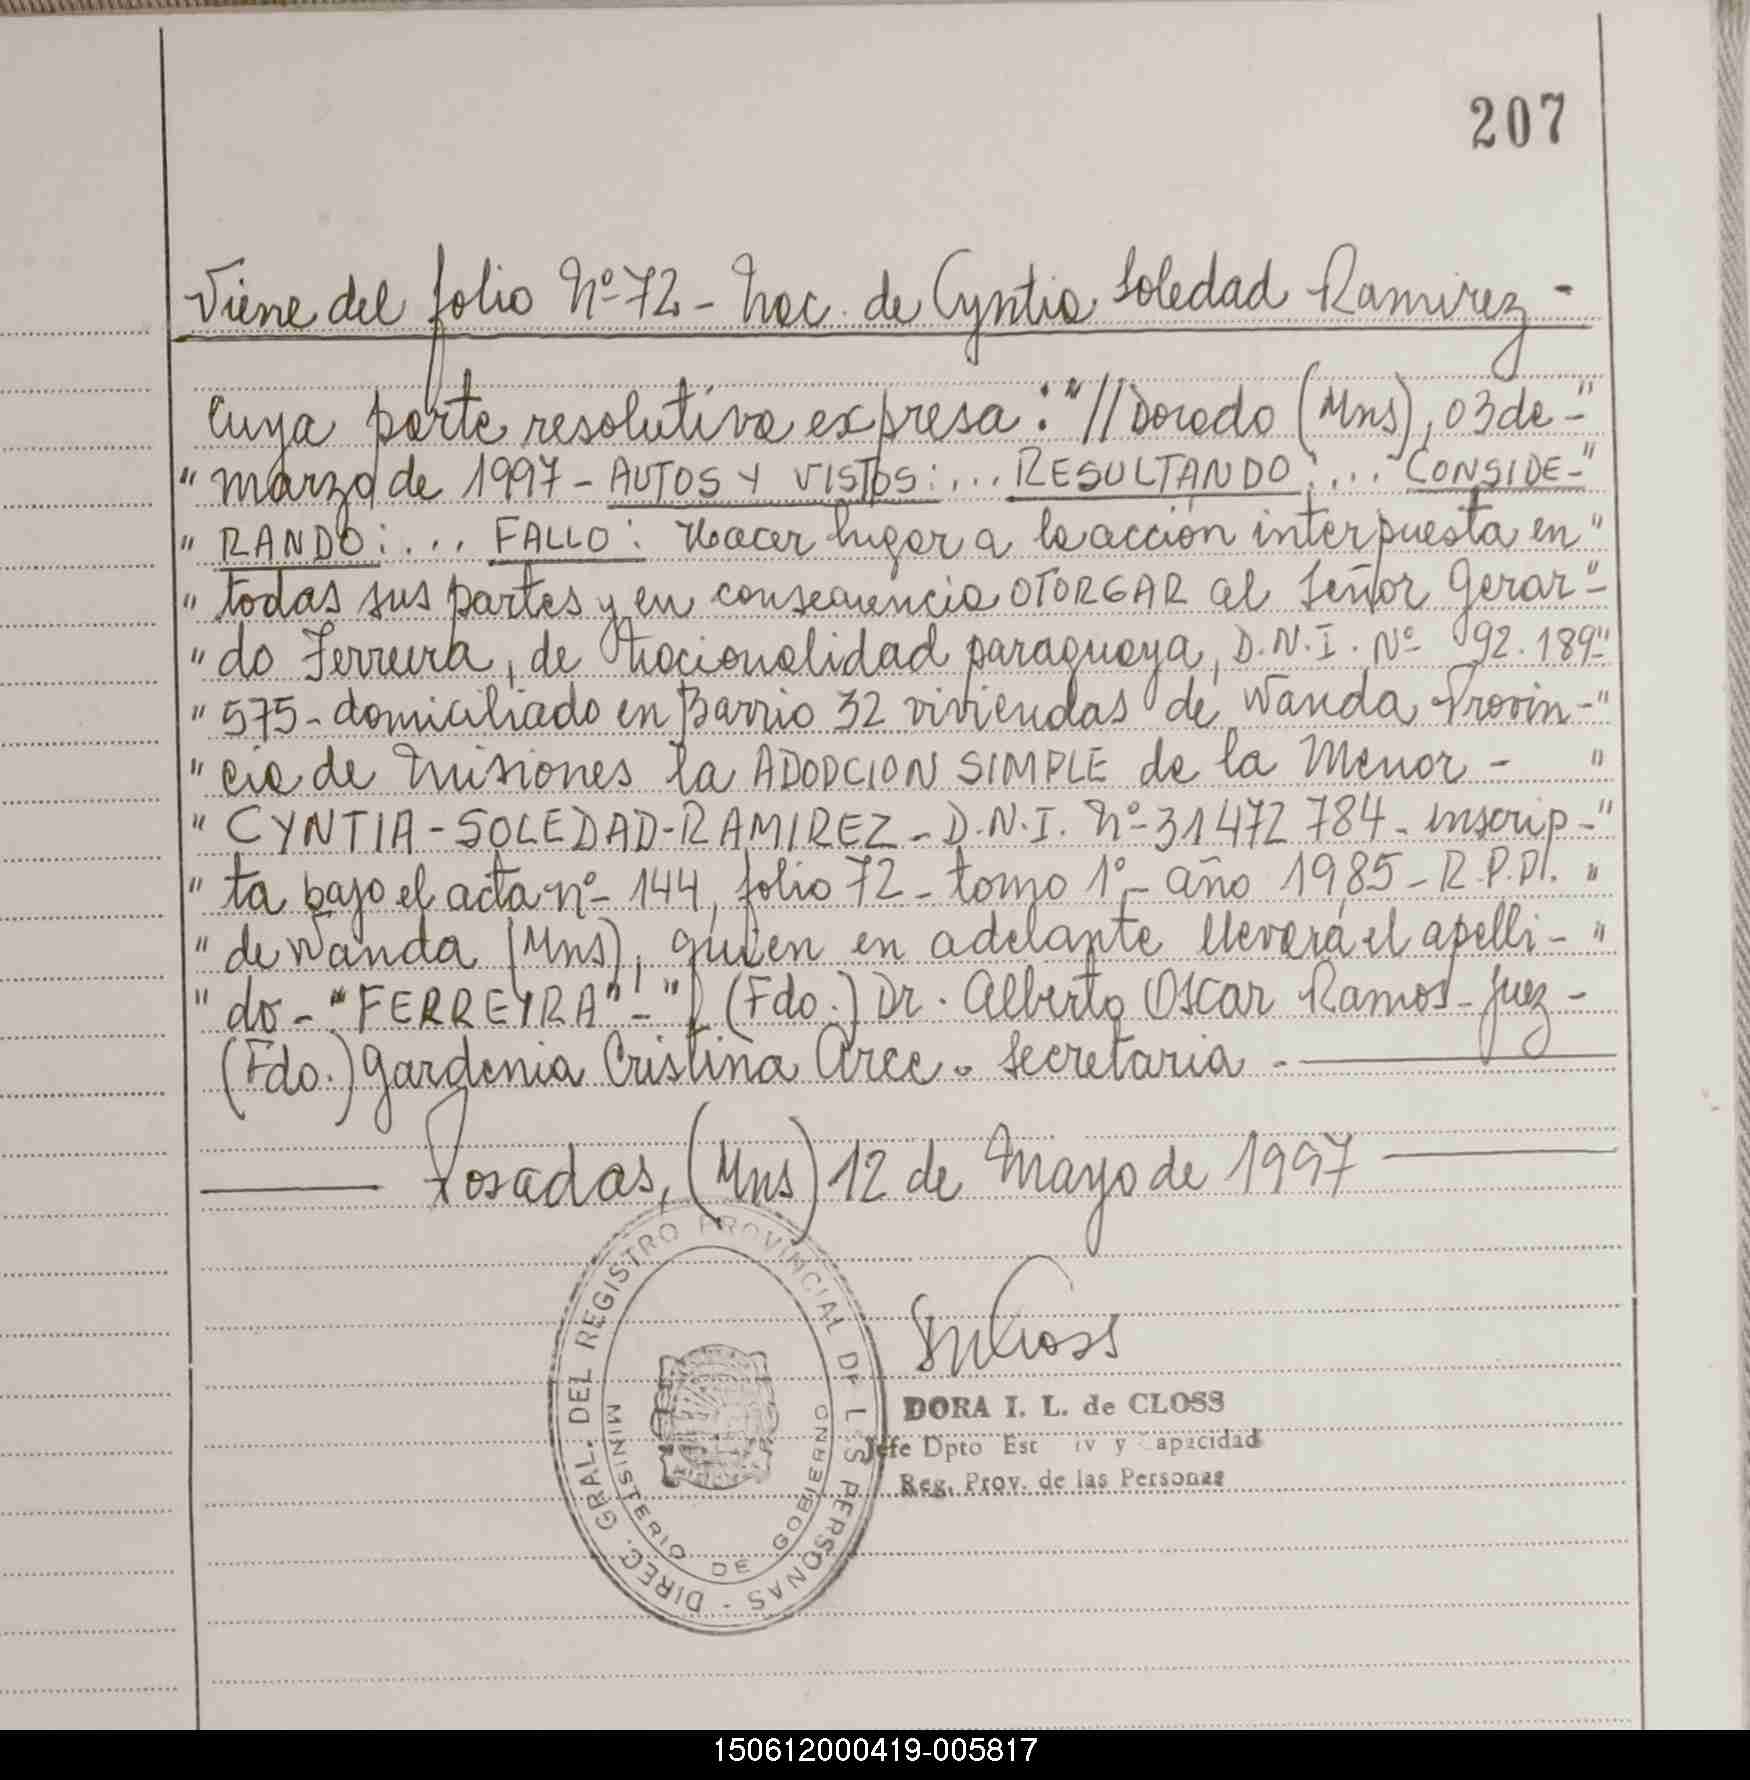 207
Viene del folio Nº 72 - Nac. de Cyntia Soledad Ramirez -
cuya parte resolutiva expresa: "//Dorado (Mns), 03 de -"
" marzo de 1997 - AUTOS Y VISTOS: ... RESULTANDO: ... CONSIDE-"
" RANDO: ... FALLO: Hacer lugar a la acción interpuesta en "
" todas sus partes y en consecuencia OTORGAR al Señor Gerar-"
" do Ferreira, de nacionalidad paraguaya, D.N.I. Nº 92.189"
" 575 - domiciliado en Barrio 32 viviendas de Wanda Provin-"
" cia de Misiones la ADOPCION SIMPLE de la Menor - "
" CYNTIA-SOLEDAD-RAMIREZ - D.N.I. Nº 31472784 - inscrip-"
" ta bajo el acta nº 144, folio 72 - tomo 1º - año 1985 - R.P.P. "
" de Wanda (Mns), quien en adelante llevará el apelli- "
" do - "FERREYRA" - " (Fdo.) Dr. Alberto Oscar Ramos - Juez -
(Fdo.) Gardenia Cristina Arce - Secretaria -
Posadas, (Mns) 12 de Mayo de 1997
DIREC. GRAL. DEL REGISTRO PROVINCIAL DE L S PERSONAS -
MINISTERIO DE GOBIERNO
DORA I. L. de CLOSS
Jefe Dpto Est iv y apacidad
Reg. Prov. de las Personas
150612000419-005817